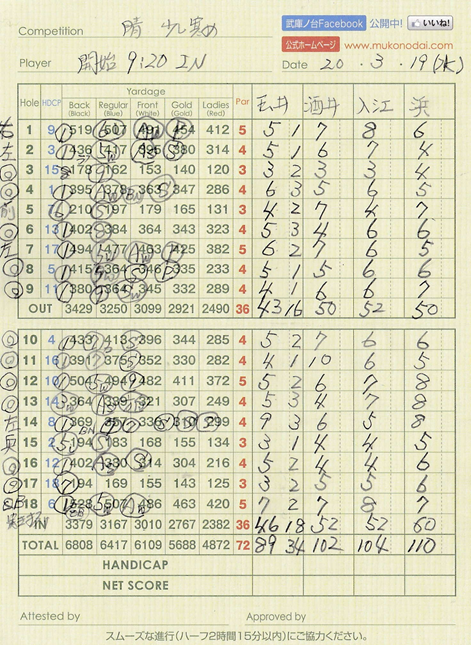 Competition 晴 少し寒め
武庫ノ台Facebook 公開中! いいね!
公式ホームページ www.mukonodai.com
Player 開始 9:20 IN Date 20・3・19(木)
Yardage
Hole HDCP Back (Black) Regular (Blue) Front (White) Gold (Gold) Ladies (Red) Par 玉井 酒井 入江 浜
1 9 519 507 491 454 412 5 5 1 7 8 6
2 3 436 417 395 380 314 4 5 1 6 7 4
3 15 178 162 153 140 120 3 3 2 3 3 4
4 1 395 378 363 347 286 4 6 3 5 6 5
5 7 210 197 179 165 131 3 4 2 7 4 7
6 13 402 384 364 343 323 4 5 3 4 6 6
7 17 494 477 463 425 382 5 6 2 7 6 5
8 5 415 364 346 335 233 4 5 1 5 6 6
9 11 380 364 345 332 289 4 4 1 6 6 7
OUT 3429 3250 3099 2921 2490 36 43 16 50 52 50
10 4 433 413 396 344 285 4 5 2 7 6 6
11 16 391 375 352 330 282 4 4 1 10 6 5
12 10 504 494 482 411 372 5 5 2 6 7 8
13 14 364 339 321 307 249 4 5 3 4 7 8
14 8 369 357 339 310 299 4 9 3 6 5 8
15 2 194 183 168 155 134 3 3 1 4 4 5
16 12 402 330 314 304 216 4 5 2 4 4 6
17 18 194 169 155 143 125 3 3 2 5 5 6
18 6 528 507 486 463 420 5 7 2 7 8 7
IN 3379 3167 3010 2767 2382 36 46 18 52 52 60
TOTAL 6808 6417 6109 5688 4872 72 89 34 102 104 110
HANDICAP
NET SCORE
Attested by Approved by
スムーズな進行(ハーフ2時間15分以内)にご協力ください。